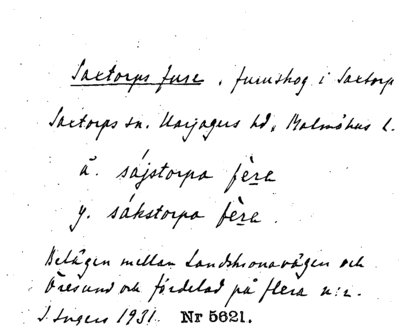 Saxtorps fure, furuskog i Saxtorp
Saxtorps sn. Harjagers hd, Malmöhus l.
ä. sájstorpa fère
y. sákstorpa fère.
Belägen mellan Landskronavägen och
Öresund och fördelad på flera n:r.
Ingers 1931. Nr 5621.